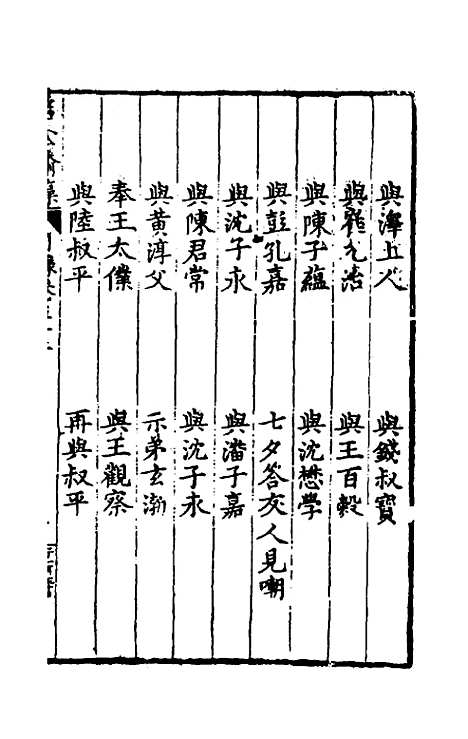 與澤上人
與錢叔寶
與允治
與王百穀
與陳子蘊
與沈懋學
與彭孔嘉
七夕答友人見嘲
與沈子永
與潘子嘉
與陳君常
與沈子永
與黃淳父
示弟玄
奉王太僕
與王觀察
與陸叔平
再與叔平